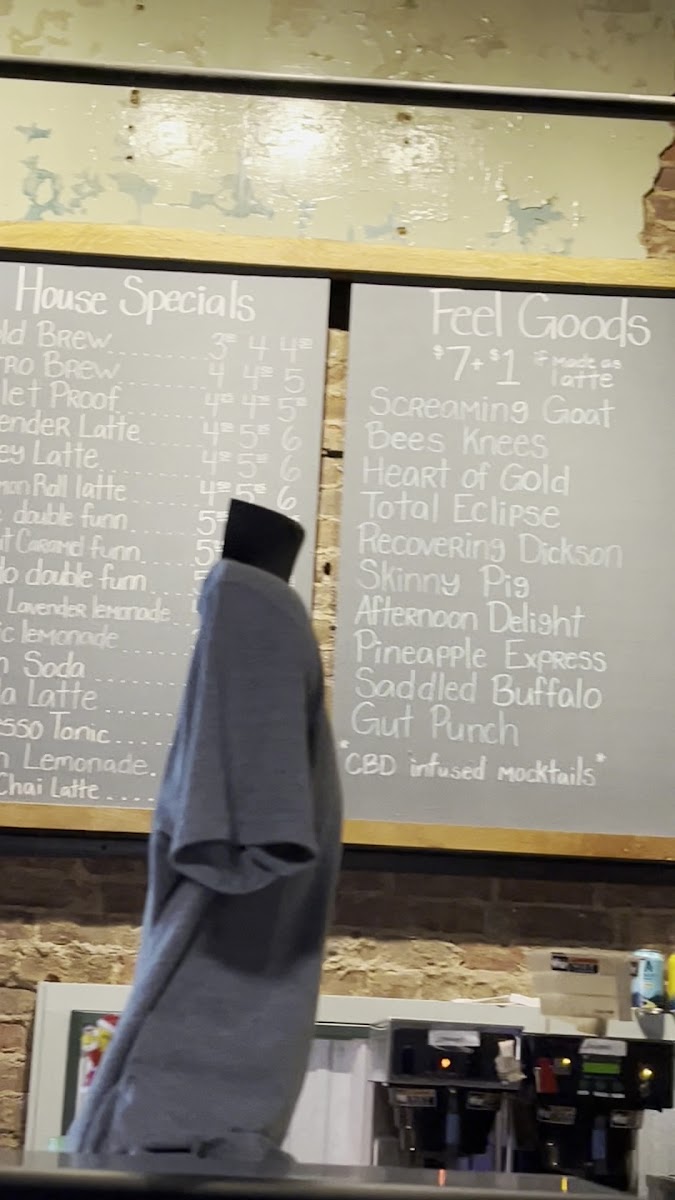 House Specials
ld Brew........ 3⁵⁰ 4 4⁵⁰
tro Brew....... 4 4⁵⁰ 5
let Proof
ender Latte
ey Latte
mon Roll latte
double funn
it Caramel funn
lo double funn
Lavender lemonade
ic lemonade
n Soda
a Latte
esso Tonic....
n Lemonade.
Chai Latte....
Feel Goods
$7 + $1 if made as latte
Screaming Goat
Bees Knees
Heart of Gold
Total Eclipse
Recovering Dickson
Skinny Pig
Afternoon Delight
Pineapple Express
Saddled Buffalo
Gut Punch
*CBD infused mocktails*